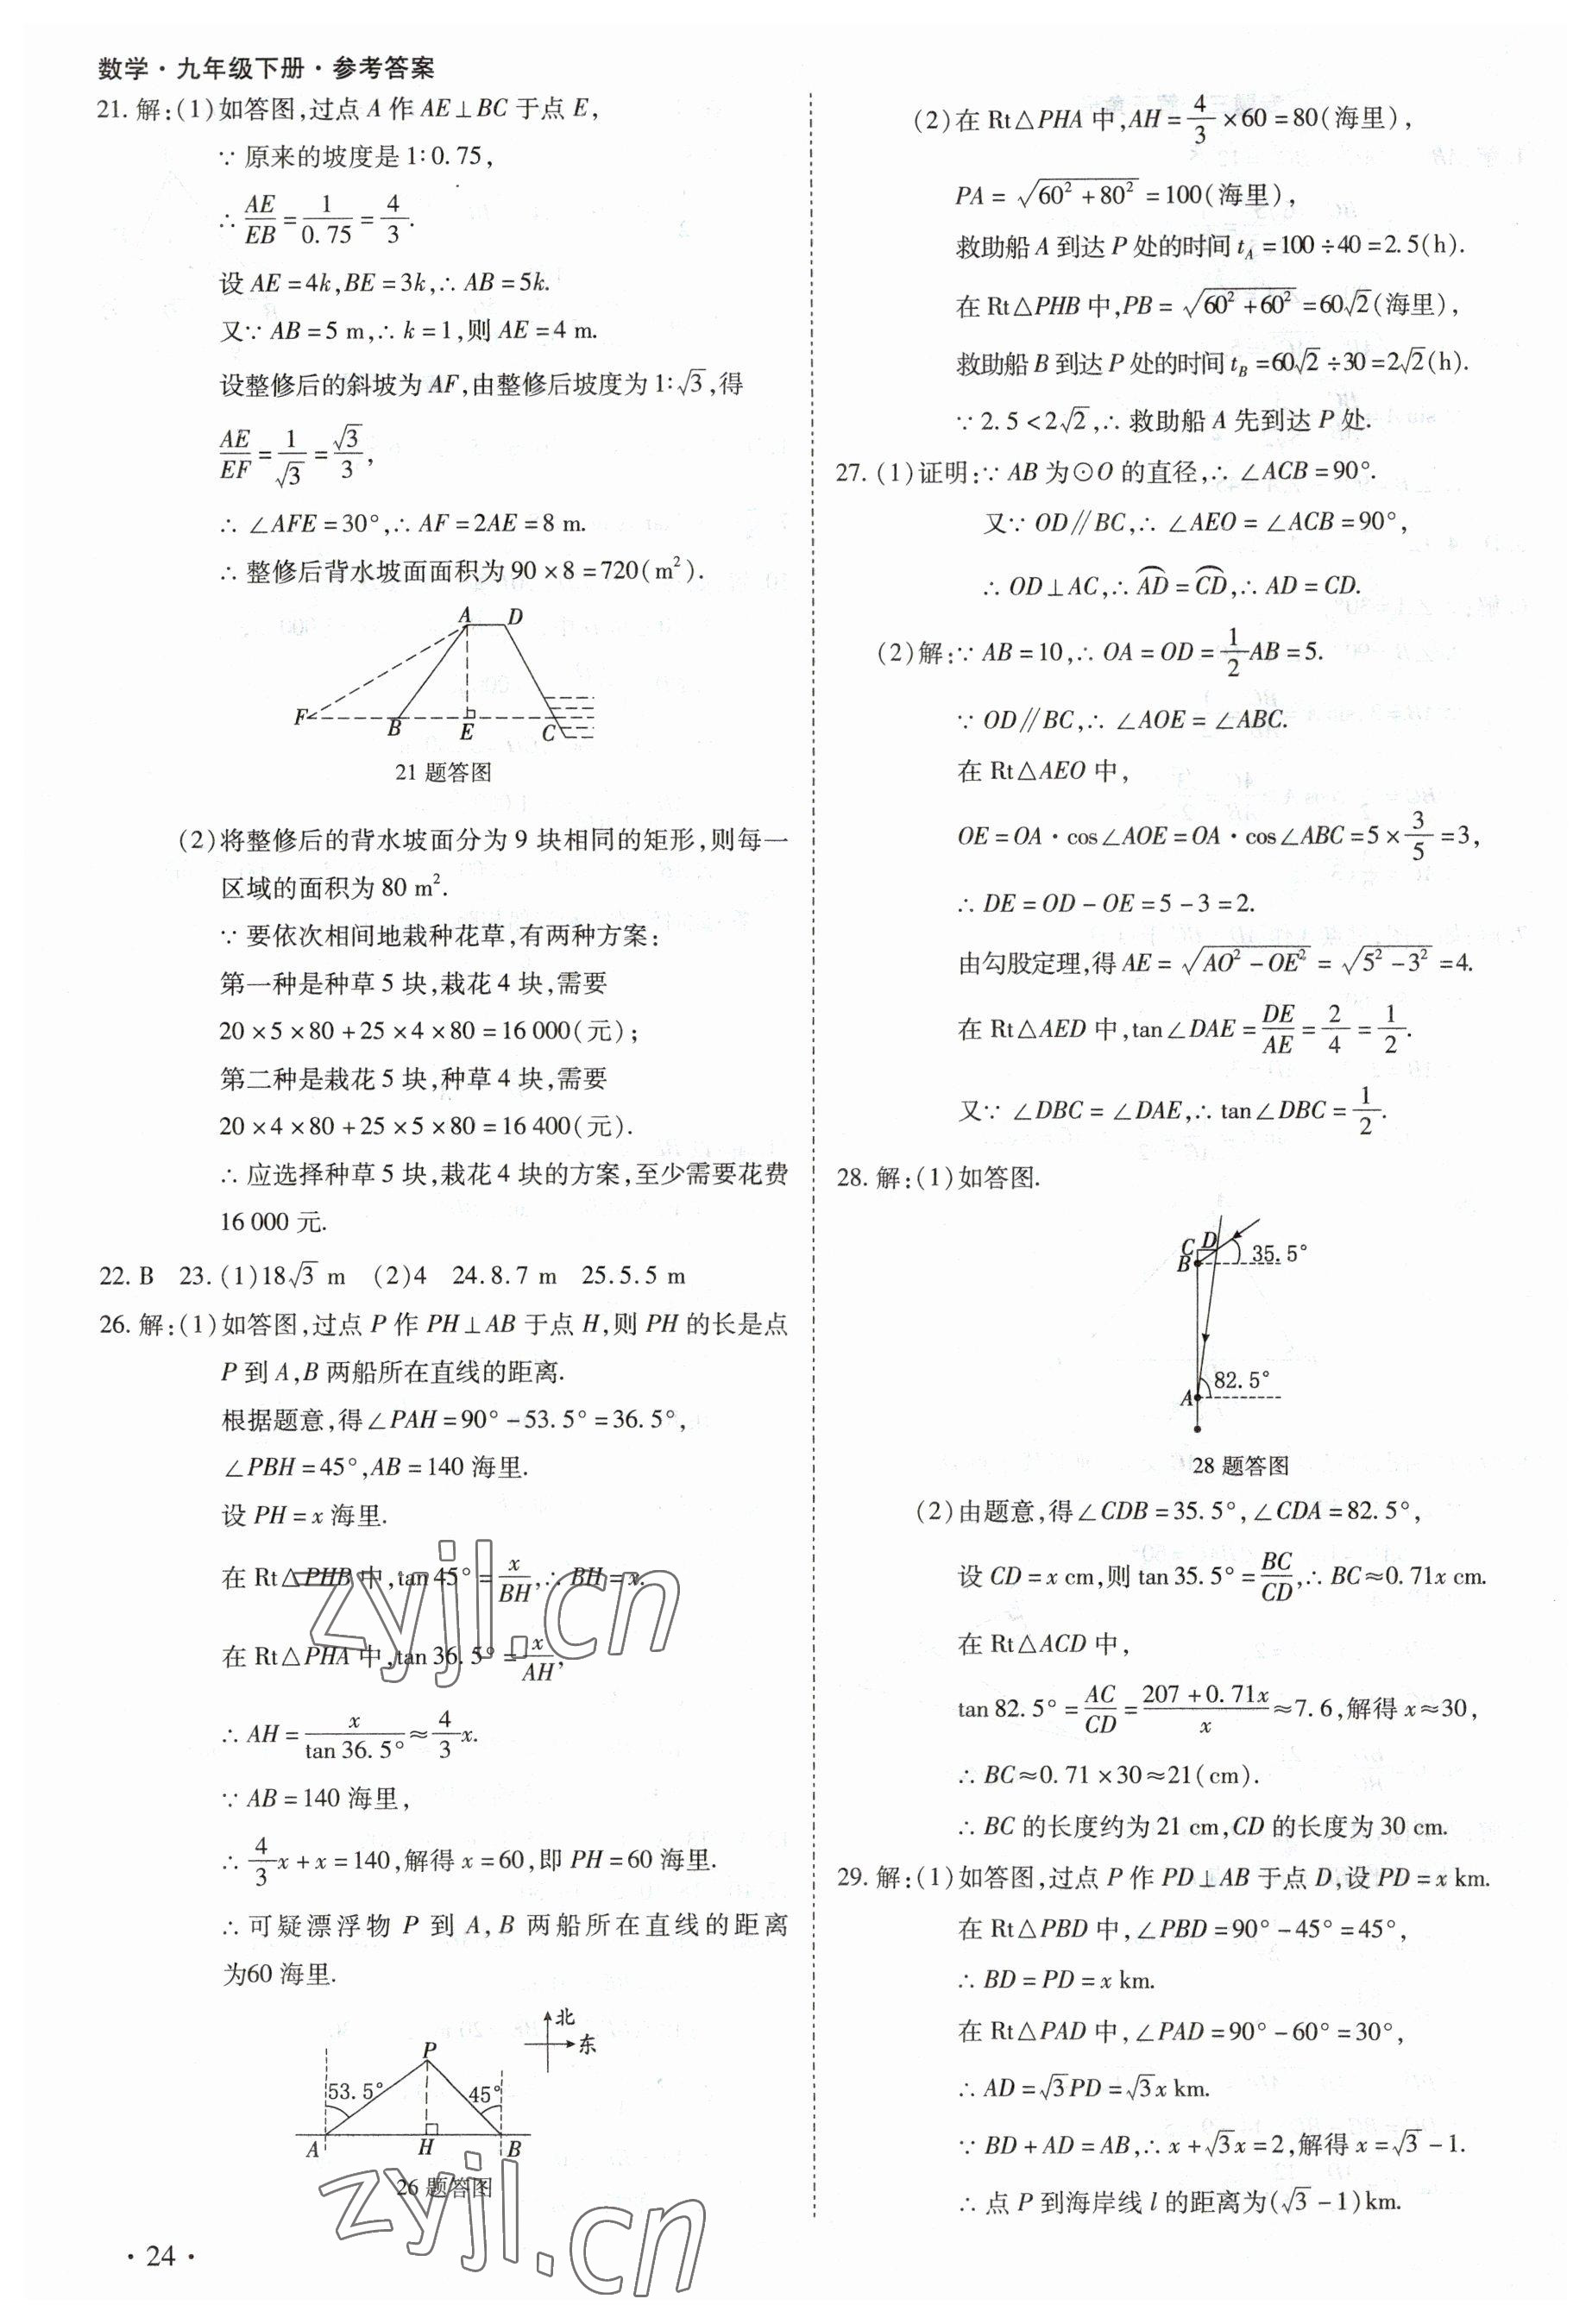 数学·九年级下册·参考答案
21.解:(1)如答图,过点A作AE⊥BC于点E,
∵原来的坡度是1∶0.75,
∴AE/EB=1/0.75=4/3.
设AE=4k,BE=3k,∴AB=5k.
又∵AB=5 m,∴k=1,则AE=4 m.
设整修后的斜坡为AF,由整修后坡度为1∶√3,得
AE/EF=1/√3=√3/3,
∴∠AFE=30°,∴AF=2AE=8 m.
∴整修后背水坡面面积为90×8=720(m²).
A D
F B E C
21题答图
(2)将整修后的背水坡面分为9块相同的矩形,则每一
区域的面积为80 m².
∵要依次相间地栽种花草,有两种方案:
第一种是种草5块,栽花4块,需要
20×5×80+25×4×80=16 000(元);
第二种是栽花5块,种草4块,需要
20×4×80+25×5×80=16 400(元).
∴应选择种草5块,栽花4块的方案,至少需要花费
16 000元.
22.B 23.(1)18√3 m (2)4 24.8.7 m 25.5.5 m
26.解:(1)如答图,过点P作PH⊥AB于点H,则PH的长是点
P到A,B两船所在直线的距离.
根据题意,得∠PAH=90°-53.5°=36.5°,
∠PBH=45°,AB=140海里.
设PH=x海里.
在Rt△PHB中,tan 45°=x/BH,∴BH=x.
在Rt△PHA中,tan 36.5°=x/AH,
∴AH=x/tan 36.5°≈4/3x.
∵AB=140海里,
∴4/3x+x=140,解得x=60,即PH=60海里.
∴可疑漂浮物P到A,B两船所在直线的距离
为60海里.
北
东
P
53.5° 45°
A H B
26题答图
zyjl.cn
zyjl.cn
·24·
(2)在Rt△PHA中,AH=4/3×60=80(海里),
PA=√(60²+80²)=100(海里),
救助船A到达P处的时间t_A=100÷40=2.5(h).
在Rt△PHB中,PB=√(60²+60²)=60√2(海里),
救助船B到达P处的时间t_B=60√2÷30=2√2(h).
∵2.5<2√2,∴救助船A先到达P处.
27.(1)证明:∵AB为⊙O的直径,∴∠ACB=90°.
又∵OD∥BC,∴∠AEO=∠ACB=90°,
∴OD⊥AC,∴⌒AD=⌒CD,∴AD=CD.
(2)解:∵AB=10,∴OA=OD=1/2AB=5.
∵OD∥BC,∴∠AOE=∠ABC.
在Rt△AEO中,
OE=OA·cos∠AOE=OA·cos∠ABC=5×3/5=3,
∴DE=OD-OE=5-3=2.
由勾股定理,得AE=√(AO²-OE²)=√(5²-3²)=4.
在Rt△AED中,tan∠DAE=DE/AE=2/4=1/2.
又∵∠DBC=∠DAE,∴tan∠DBC=1/2.
28.解:(1)如答图.
C D
B 35.5°
A 82.5°
28题答图
(2)由题意,得∠CDB=35.5°,∠CDA=82.5°,
设CD=x cm,则tan 35.5°=BC/CD,∴BC≈0.71x cm.
在Rt△ACD中,
tan 82.5°=AC/CD=(207+0.71x)/x≈7.6,解得x≈30,
∴BC≈0.71×30≈21(cm).
∴BC的长度约为21 cm,CD的长度为30 cm.
29.解:(1)如答图,过点P作PD⊥AB于点D,设PD=x km.
在Rt△PBD中,∠PBD=90°-45°=45°,
∴BD=PD=x km.
在Rt△PAD中,∠PAD=90°-60°=30°,
∴AD=√3PD=√3x km.
∵BD+AD=AB,∴x+√3x=2,解得x=√3-1.
∴点P到海岸线l的距离为(√3-1)km.